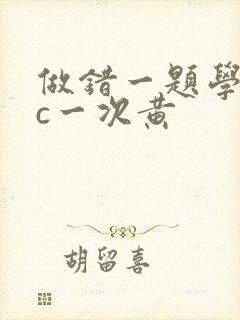 做錯一題學
c一次黃
胡留喜